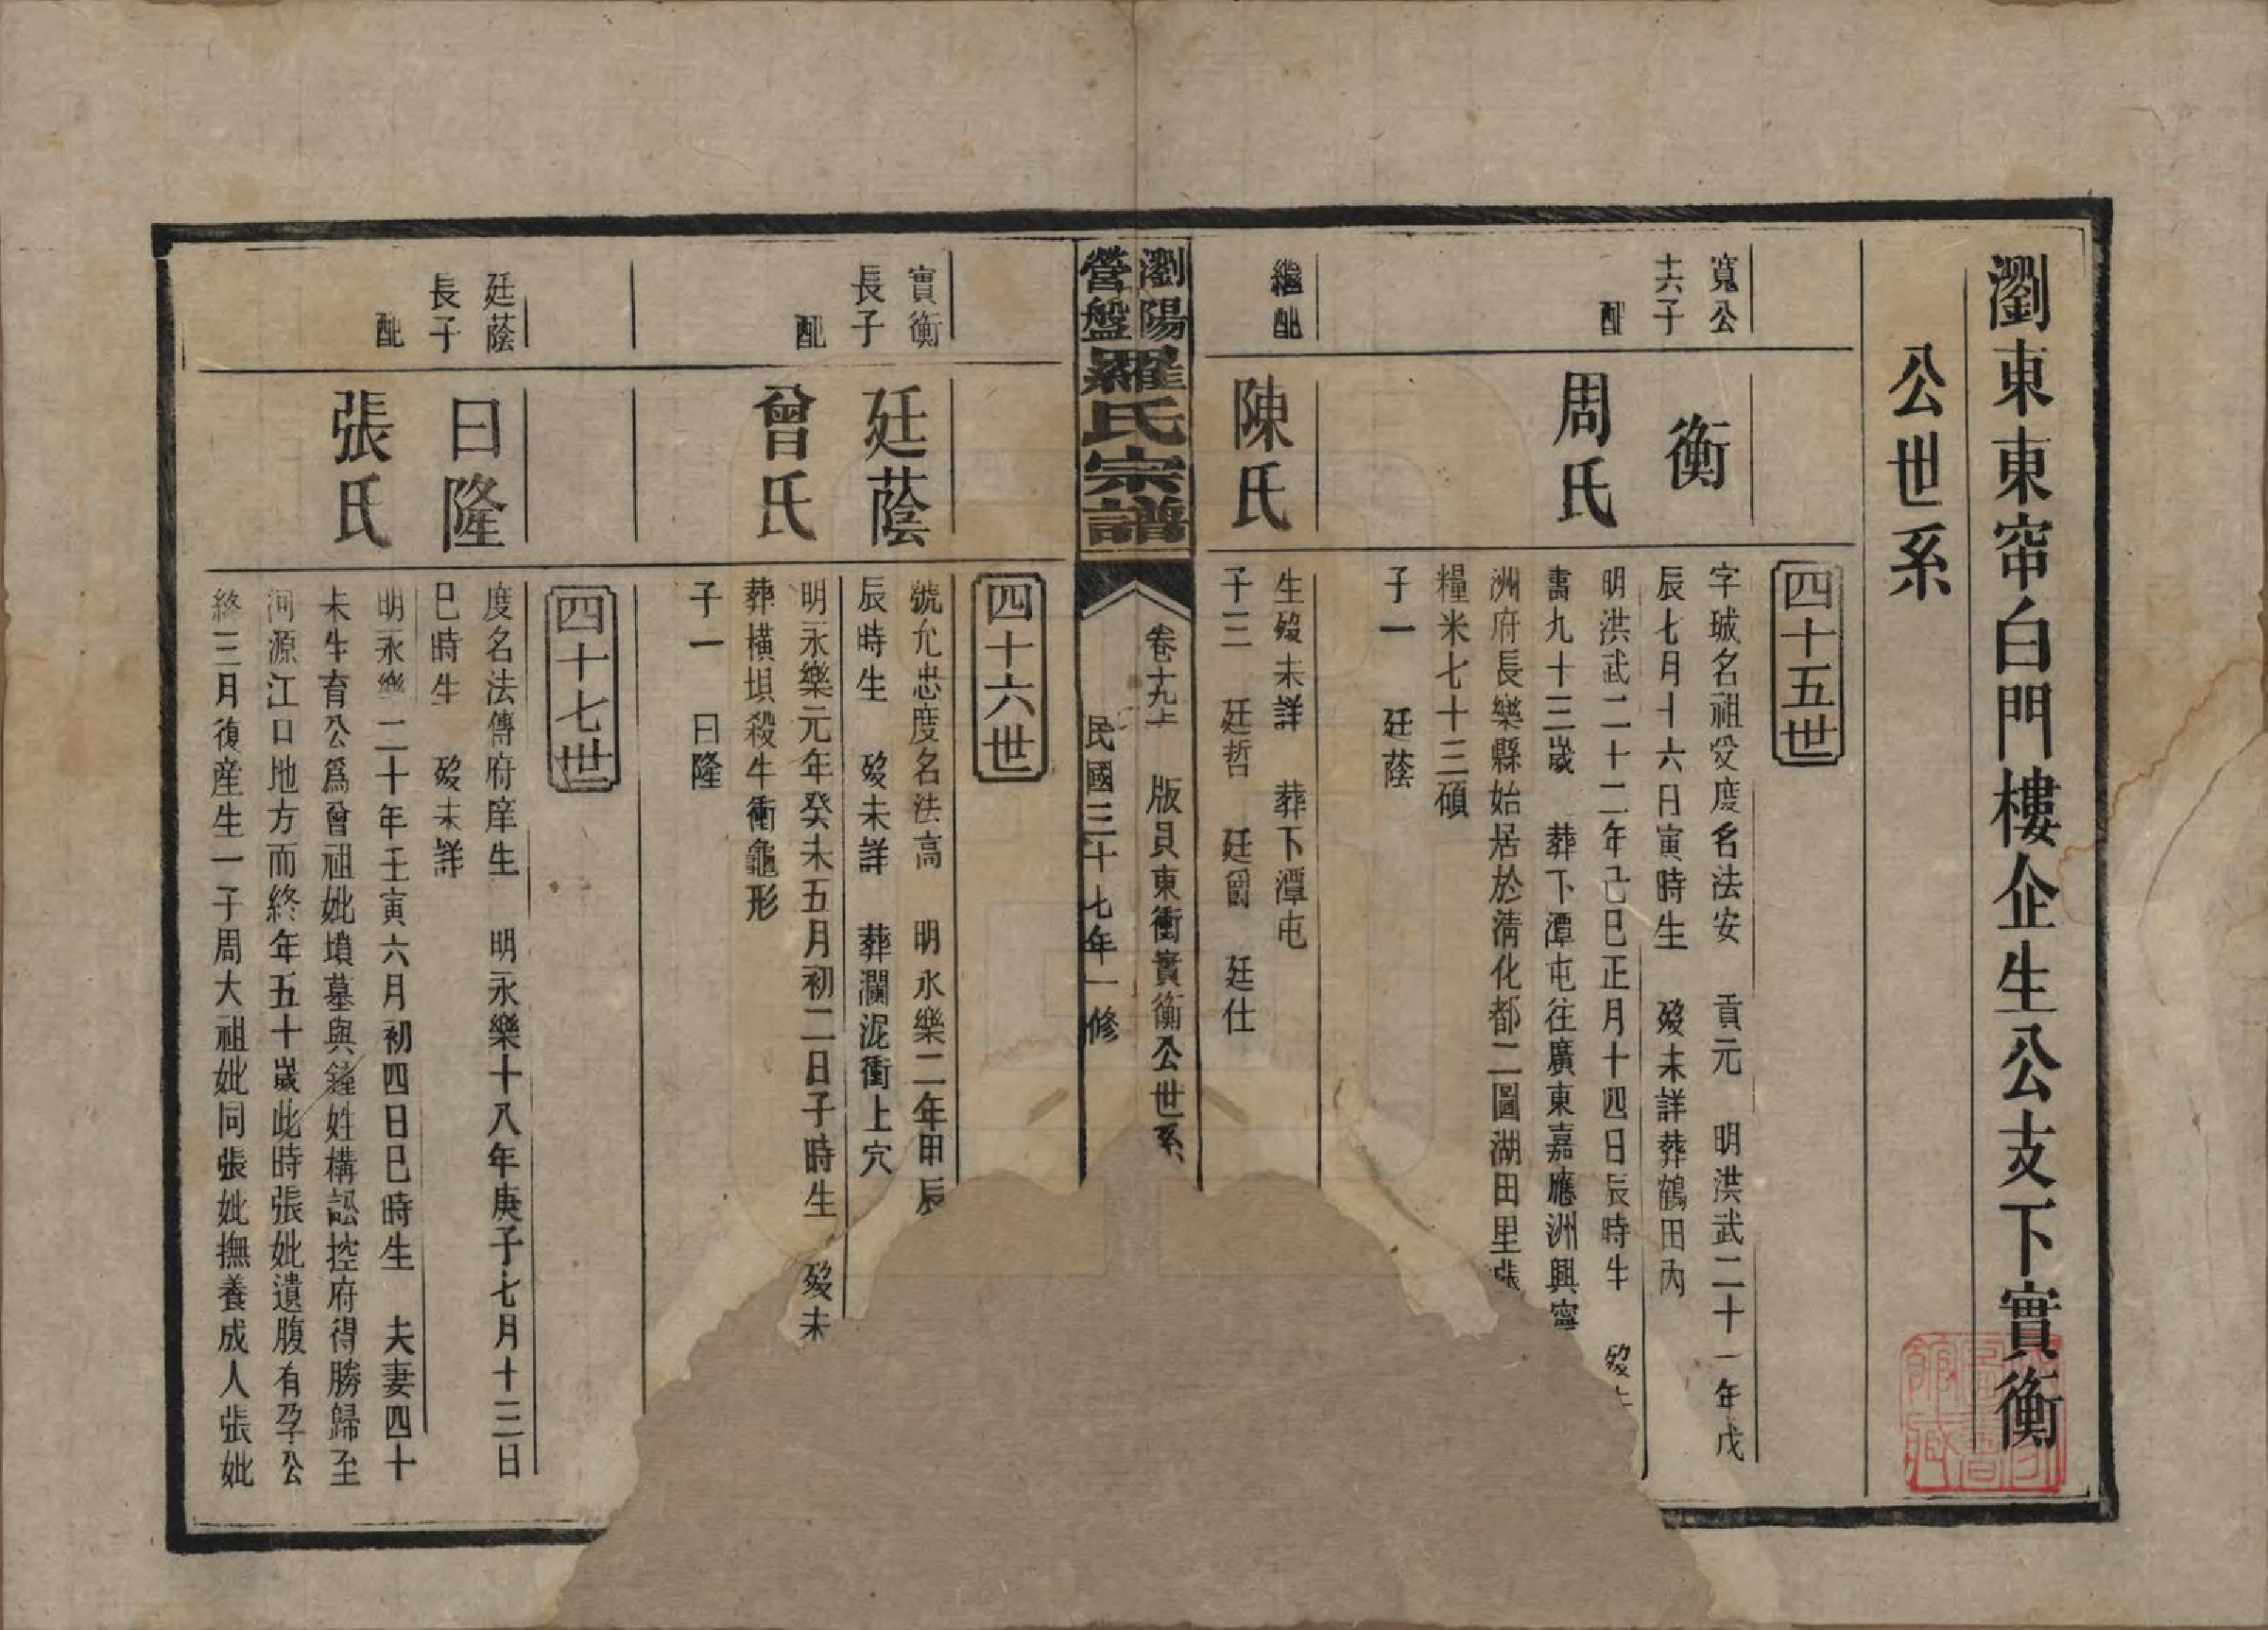 瀏東東帘白門樓企生公支下實衡
公世系
四十五世
寬公
十六子
衡
字城名祖受度名法安 貢元 明洪武二十一年戊
辰七月十六日寅時生 歿未詳葬鶴田內
配
周氏
明洪武二十二年己巳正月十四日辰時生 歿
壽九十三歲 葬下潭屯往廣東嘉應洲興寧
洲府長樂縣始居於清化都二圖湖田里張
糧米七十三碩
子一 廷蔭
繼配
陳氏
生歿未詳 葬下潭屯
子三 廷哲 廷爵 廷仕
瀏陽
營盤
羅氏宗譜
卷十九上 版頁東衝實衡公世系
民國三十七年一修
四十六世
實衡
長子
廷蔭
號允忠度名法高 明永樂二年甲辰
辰時生 歿未詳 葬瀾泥衝上穴
配
曾氏
明永樂元年癸未五月初二日子時生 歿未
葬橫垻殺牛衝龜形
子一 曰隆
四十七世
廷蔭
長子
曰隆
度名法傳府庠生 明永樂十八年庚子七月十三日
巳時生 歿未詳
配
張氏
明永樂二十年壬寅六月初四日巳時生 夫妻四十
未生育公爲曾祖妣墳墓與鍾姓構訟控府得勝歸至
河源江口地方而終年五十歲此時張妣遺腹有孕公
終三月後産生一子周大祖妣同張妣撫養成人張妣